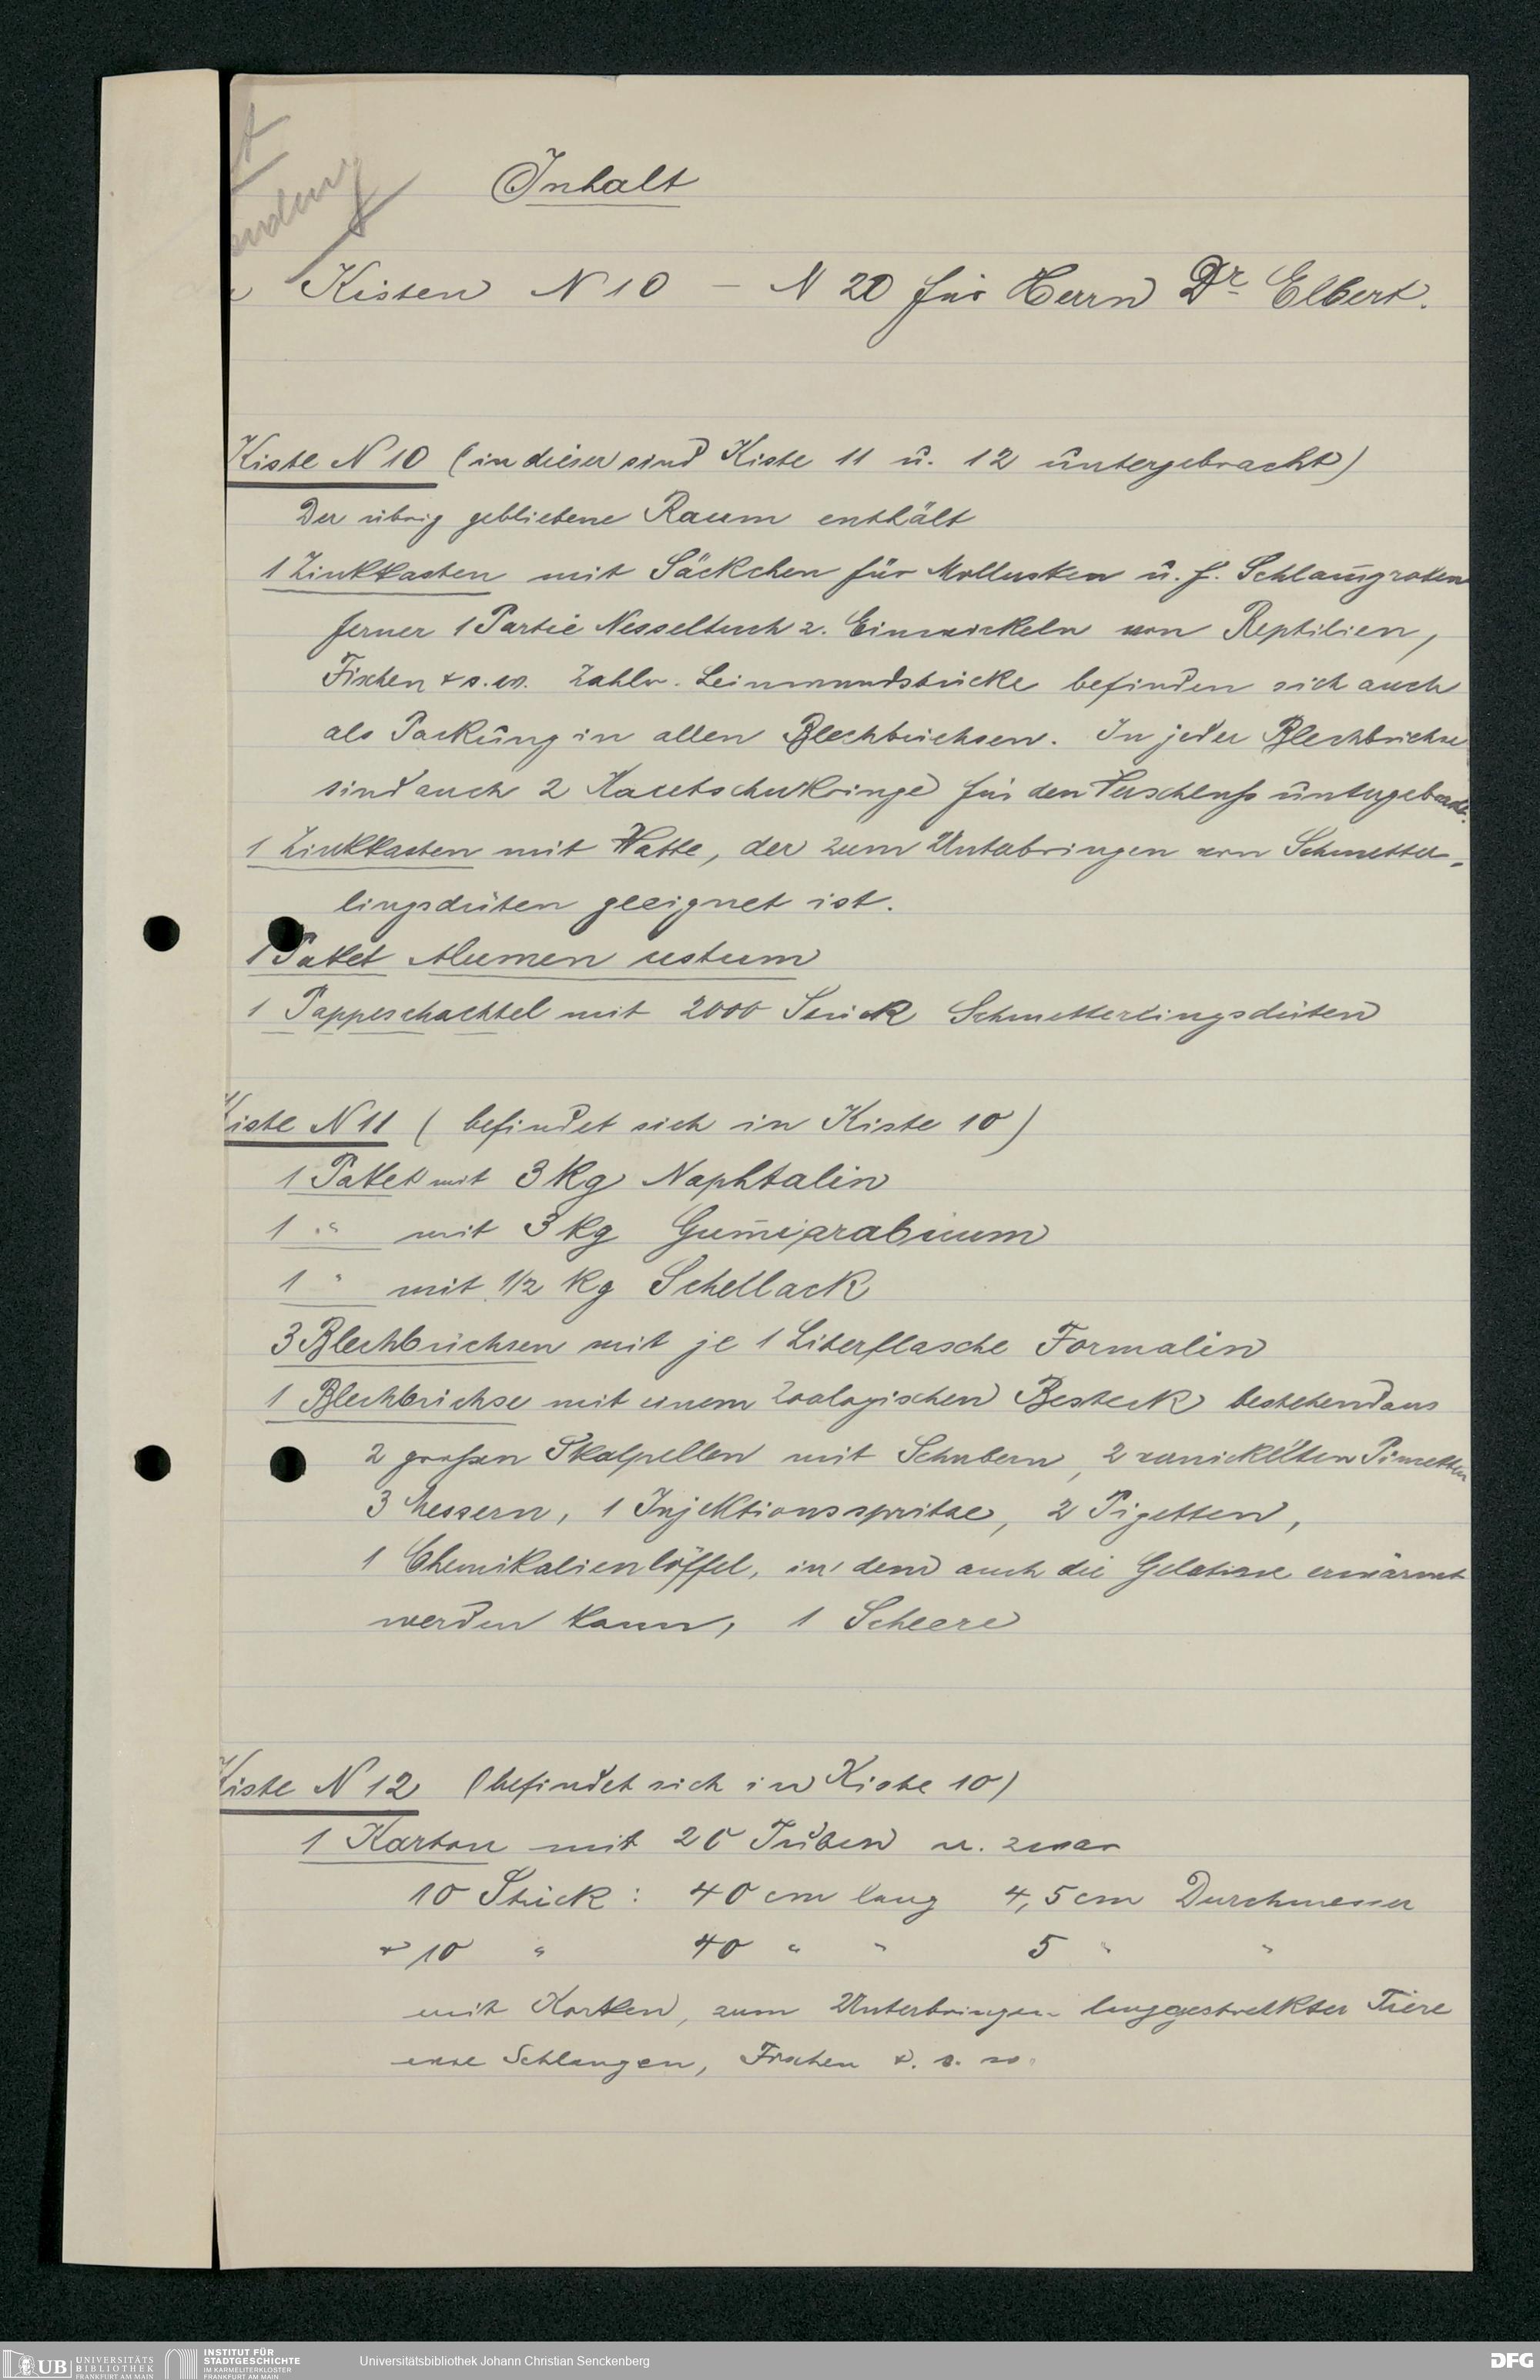 Inhalt
Kisten N 10 – N 20 für Herrn Dr. Elbert.
Kiste N 10 (in dieser sind Kiste 11 u. 12 untergebracht)
Der übrig gebliebene Raum enthält
1 Zinkkasten mit Säckchen für Mollusken u. f. Schlam̅groten
ferner 1 Partie Nesseltuch z. Einwickeln von Reptilien,
Fischen & s. w. Zahlr. Leinwandstücke befinden sich auch
als Packung in allen Blechbüchsen. In jeder Blechbüchse
sind auch 2 Kautschukringe für den Verschluß untergebracht.
1 Zinkkasten mit Watte, der zum Unterbringen von Schmetter-
lingsdüten geeignet ist.
1 Paket Alumen ustum
1 Pappeschachtel mit 2000 Stück Schmetterlingsdüten
Kiste N 11 ( befindet sich in Kiste 10 )
1 Paket mit 3 kg Naphtalin
1 " mit 3 kg Gum̅iarabicum
1 " mit 1/2 kg Schellack
3 Blechbüchsen mit je 1 Literflasche Formalin
1 Blechbüchse mit einem zoologischen Besteck bestehend aus
2 großen Skalpellen mit Schubern, 2 vernickelten Pinzetten
3 Messern, 1 Injektionsspritze, 2 Pipetten,
1 Chemikalienlöffel, in dem auch die Gelatine erwärmt
werden kann, 1 Scheere
Kiste N 12 (befindet sich in Kiste 10)
1 Karton mit 20 Tuben u. zwar
10 Stück : 40 cm lang 4,5 cm Durchmesser
& 10 " 40 " " 5 " "
mit Korken, zum Unterbringen langgestreckter Tiere
wie Schlangen, Fischen u. s. w.
UB UNIVERSITÄTS
BIBLIOTHEK
FRANKFURT AM MAIN
INSTITUT FÜR
STADTGESCHICHTE
IM KARMELITERKLOSTER
FRANKFURT AM MAIN
Universitätsbibliothek Johann Christian Senckenberg
DFG